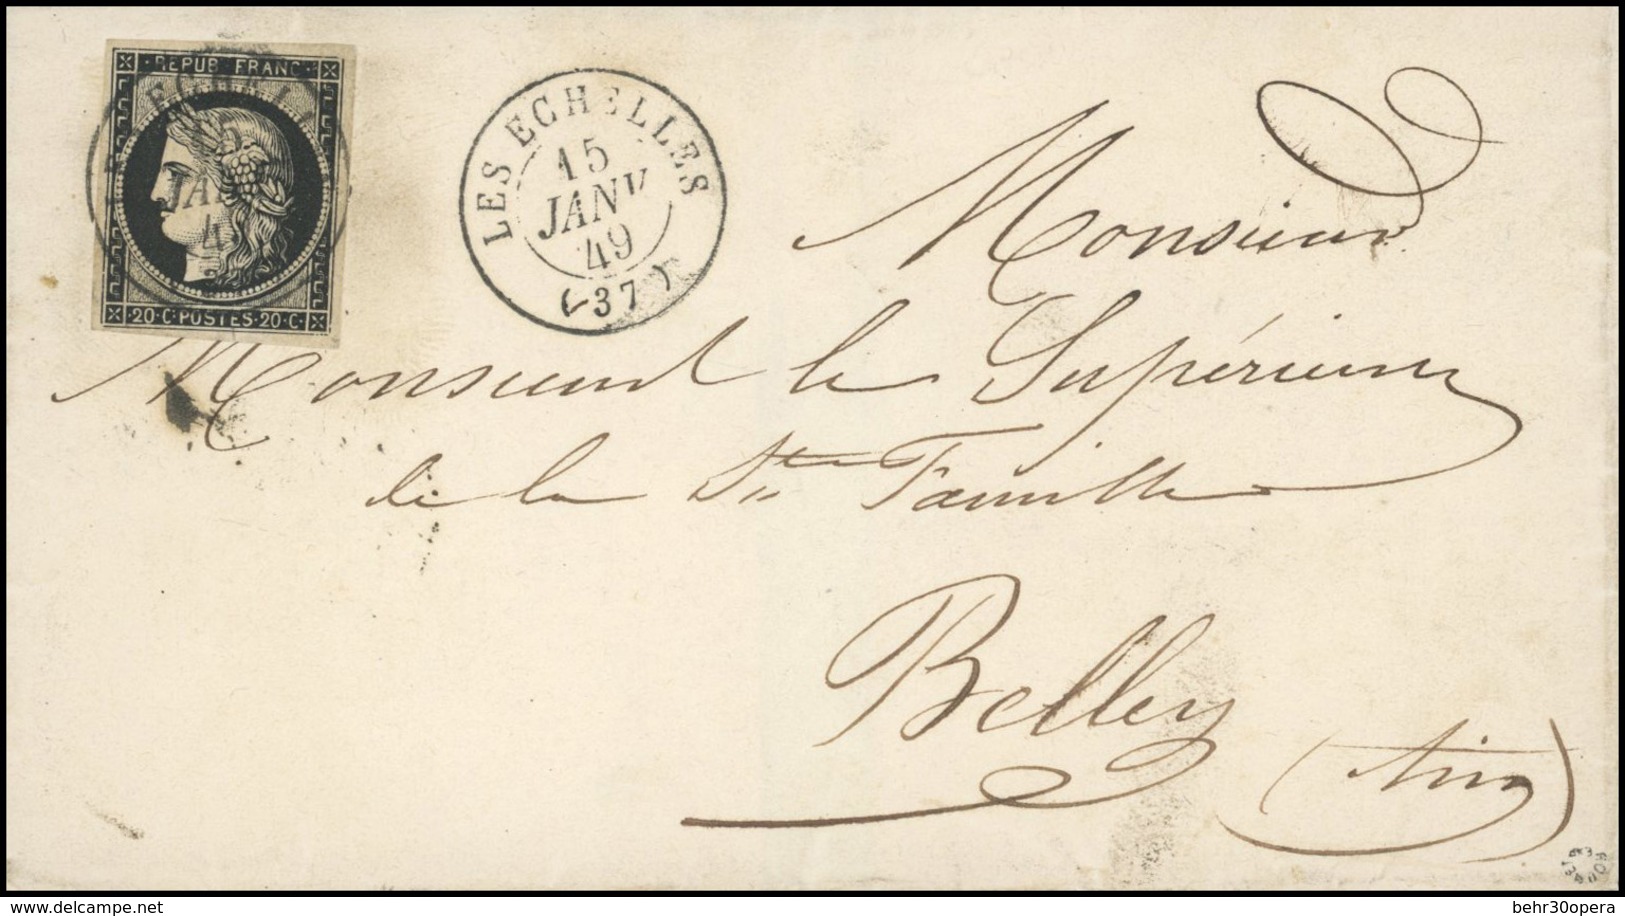 REPUB·FRANC
20·C·POSTES·20·C
JA
4
LES ECHELLES
15
JANV
49
(37)
Monsieur
Monsieur le Supérieur
de la Ste Famille
Belley
(Ain)
delcampe.net
behr30opera